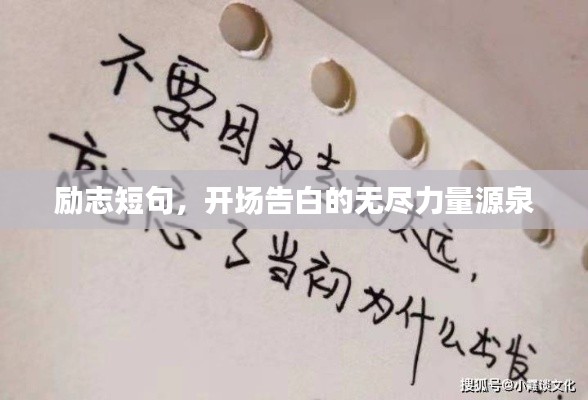 不要因为走太远，
励志短句，开场告白的无尽力量源泉
忘了当初为什么出发.
搜狐号@小霞谈文化